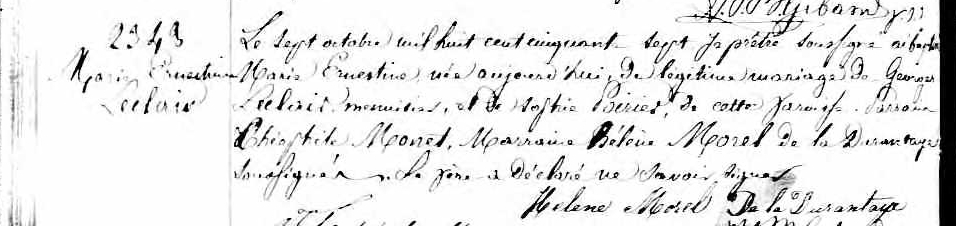 2343
Marie Ernestine
Leclair
Le sept octobre mil huit cent cinquante sept Je prêtre soussigné ai baptisé
Marie Ernestine née aujourd'hui, de légitime mariage de Georges
Leclair menuisier, et de Sophie de cette Paroisse. Parrain
Morel, Marraine Hélène Morel de la Durantaye,
soussignés. Le père a déclaré ne savoir signer
Helene Morel De la Durantaye